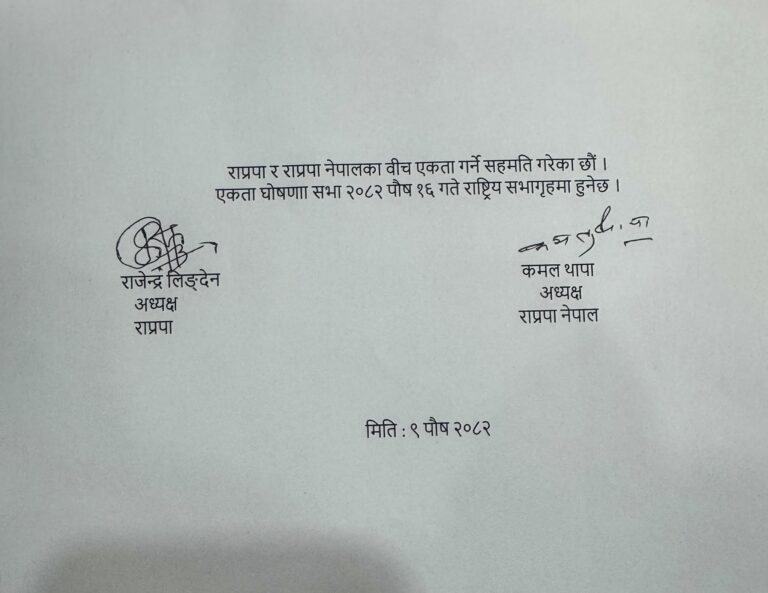 राप्रपा र राप्रपा नेपालका वीच एकता गर्ने सहमति गरेका छौं ।
एकता घोषणाा सभा २०८२ पौष १६ गते राष्ट्रिय सभागृहमा हुनेछ ।
राजेन्द्र लिङ्देन
अध्यक्ष
राप्रपा
कमल थापा
अध्यक्ष
राप्रपा नेपाल
मिति : ९ पौष २०८२